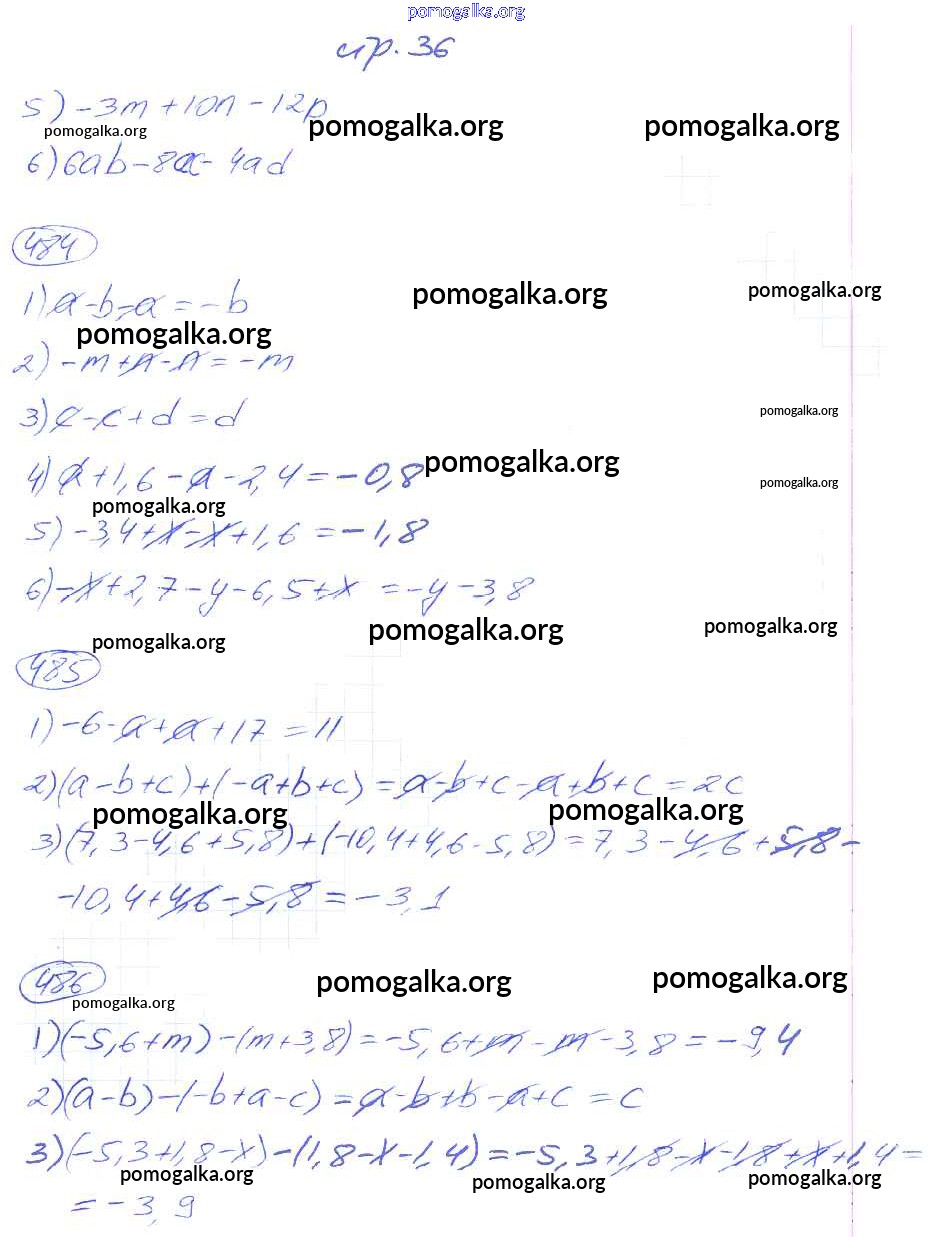 pomogalka.org
стр. 36
5) -3m + 10n - 12p
pomogalka.org pomogalka.org pomogalka.org
6) 6ab - 8ac - 4ad
484
1) a - b - a = -b
pomogalka.org pomogalka.org
pomogalka.org
2) -m + n - n = -m
3) c - c + d = d
pomogalka.org
4) a + 1,6 - a - 2,4 = -0,8
pomogalka.org pomogalka.org
pomogalka.org
5) -3,4 + x - x + 1,6 = -1,8
6) -x + 2,7 - y - 6,5 + x = -y - 3,8
pomogalka.org pomogalka.org pomogalka.org
485
1) -6 - a + a + 17 = 11
2) (a - b + c) + (-a + b + c) = a - b + c - a + b + c = 2c
pomogalka.org pomogalka.org
3) (7,3 - 4,6 + 5,8) + (-10,4 + 4,6 - 5,8) = 7,3 - 4,6 + 5,8 -
-10,4 + 4,6 - 5,8 = -3,1
486
pomogalka.org pomogalka.org pomogalka.org
1) (-5,6 + m) - (m + 3,8) = -5,6 + m - m - 3,8 = -9,4
2) (a - b) - (-b + a - c) = a - b + b - a + c = c
3) (-5,3 + 1,8 - x) - (1,8 - x - 1,4) = -5,3 + 1,8 - x - 1,8 + x + 1,4 =
pomogalka.org pomogalka.org pomogalka.org
= -3,9